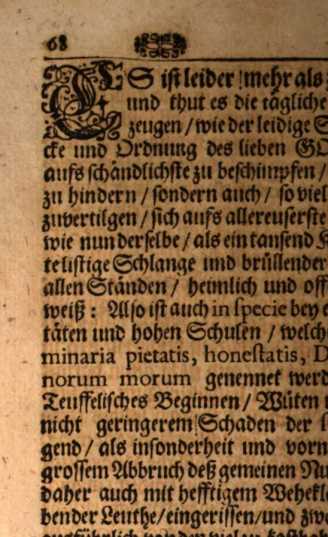 68
ES ist leider! mehr als
und thut es die tägliche
zeugen / wie der leidige
cke und Ordnung des lieben GO
aufs schändlichste zu beschimpfen /
zu hindern / sondern auch / so viel
zuvertilgen / sich aufs allereuserste
wie nun derselbe / als ein tausend
telistige Schlange und brüllender
allen Ständen / heimlich und off
weiß : Also ist auch in specie bey
täten und hohen Schulen / welch
minaria pietatis, honestatis, D
norum morum genennet werd
Teuffelisches Beginnen / Wüten
nicht geringerem Schaden der
gend / als insonderheit und vorn
grossem Abbruch deß gemeinen Nu
daher auch mit hefftigem Wehekl
bender Leuthe / eingerissen / und zwa